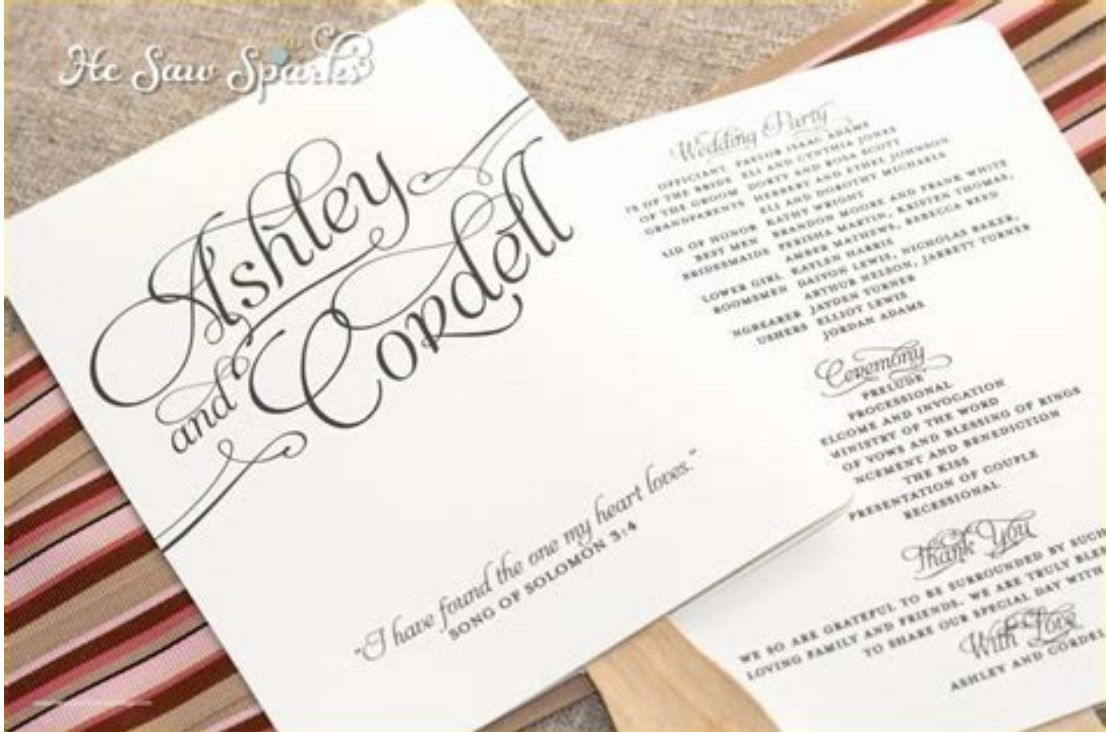 He Saw Sparks
Ashley
and Cordell
"I have found the one my heart loves."
SONG OF SOLOMON 3:4
Wedding Party
OFFICIANT PASTOR ISAAC ADAMS
TS OF THE BRIDE ELI AND CYNTHIA JONES
OF THE GROOM DORTY AND ROSA SCOTT
GRANDPARENTS HERBERT AND ETHEL JOHNSON
ELI AND DOROTHY MICHAELS
AID OF HONOR KATHY WRIGHT
BEST MEN BRANDON MOORE AND FRANK WHITE
BRIDESMAIDS PERISHA MARTIN, KRISTEN THOMAS,
AMBER MATHEWS, REBECCA REED
LOWER GIRL KAYLEN HARRIS
ROOMSMEN DAIVON LEWIS, NICHOLAS BAKER,
ARTHUR NELSON, JARRETT TURNER
NGBEARER JAYDEN TURNER
USHERS ELLIOT LEWIS
JORDAN ADAMS
Ceremony
PRELUDE
PROCESSIONAL
ELCOME AND INVOCATION
MINISTRY OF THE WORD
OF VOWS AND BLESSING OF RINGS
NCEMENT AND BENEDICTION
THE KISS
PRESENTATION OF COUPLE
RECESSIONAL
Thank You
WE SO ARE GRATEFUL TO BE SURROUNDED BY SUCH
LOVING FAMILY AND FRIENDS. WE ARE TRULY BLES
TO SHARE OUR SPECIAL DAY WITH
With Love
ASHLEY AND CORDEL